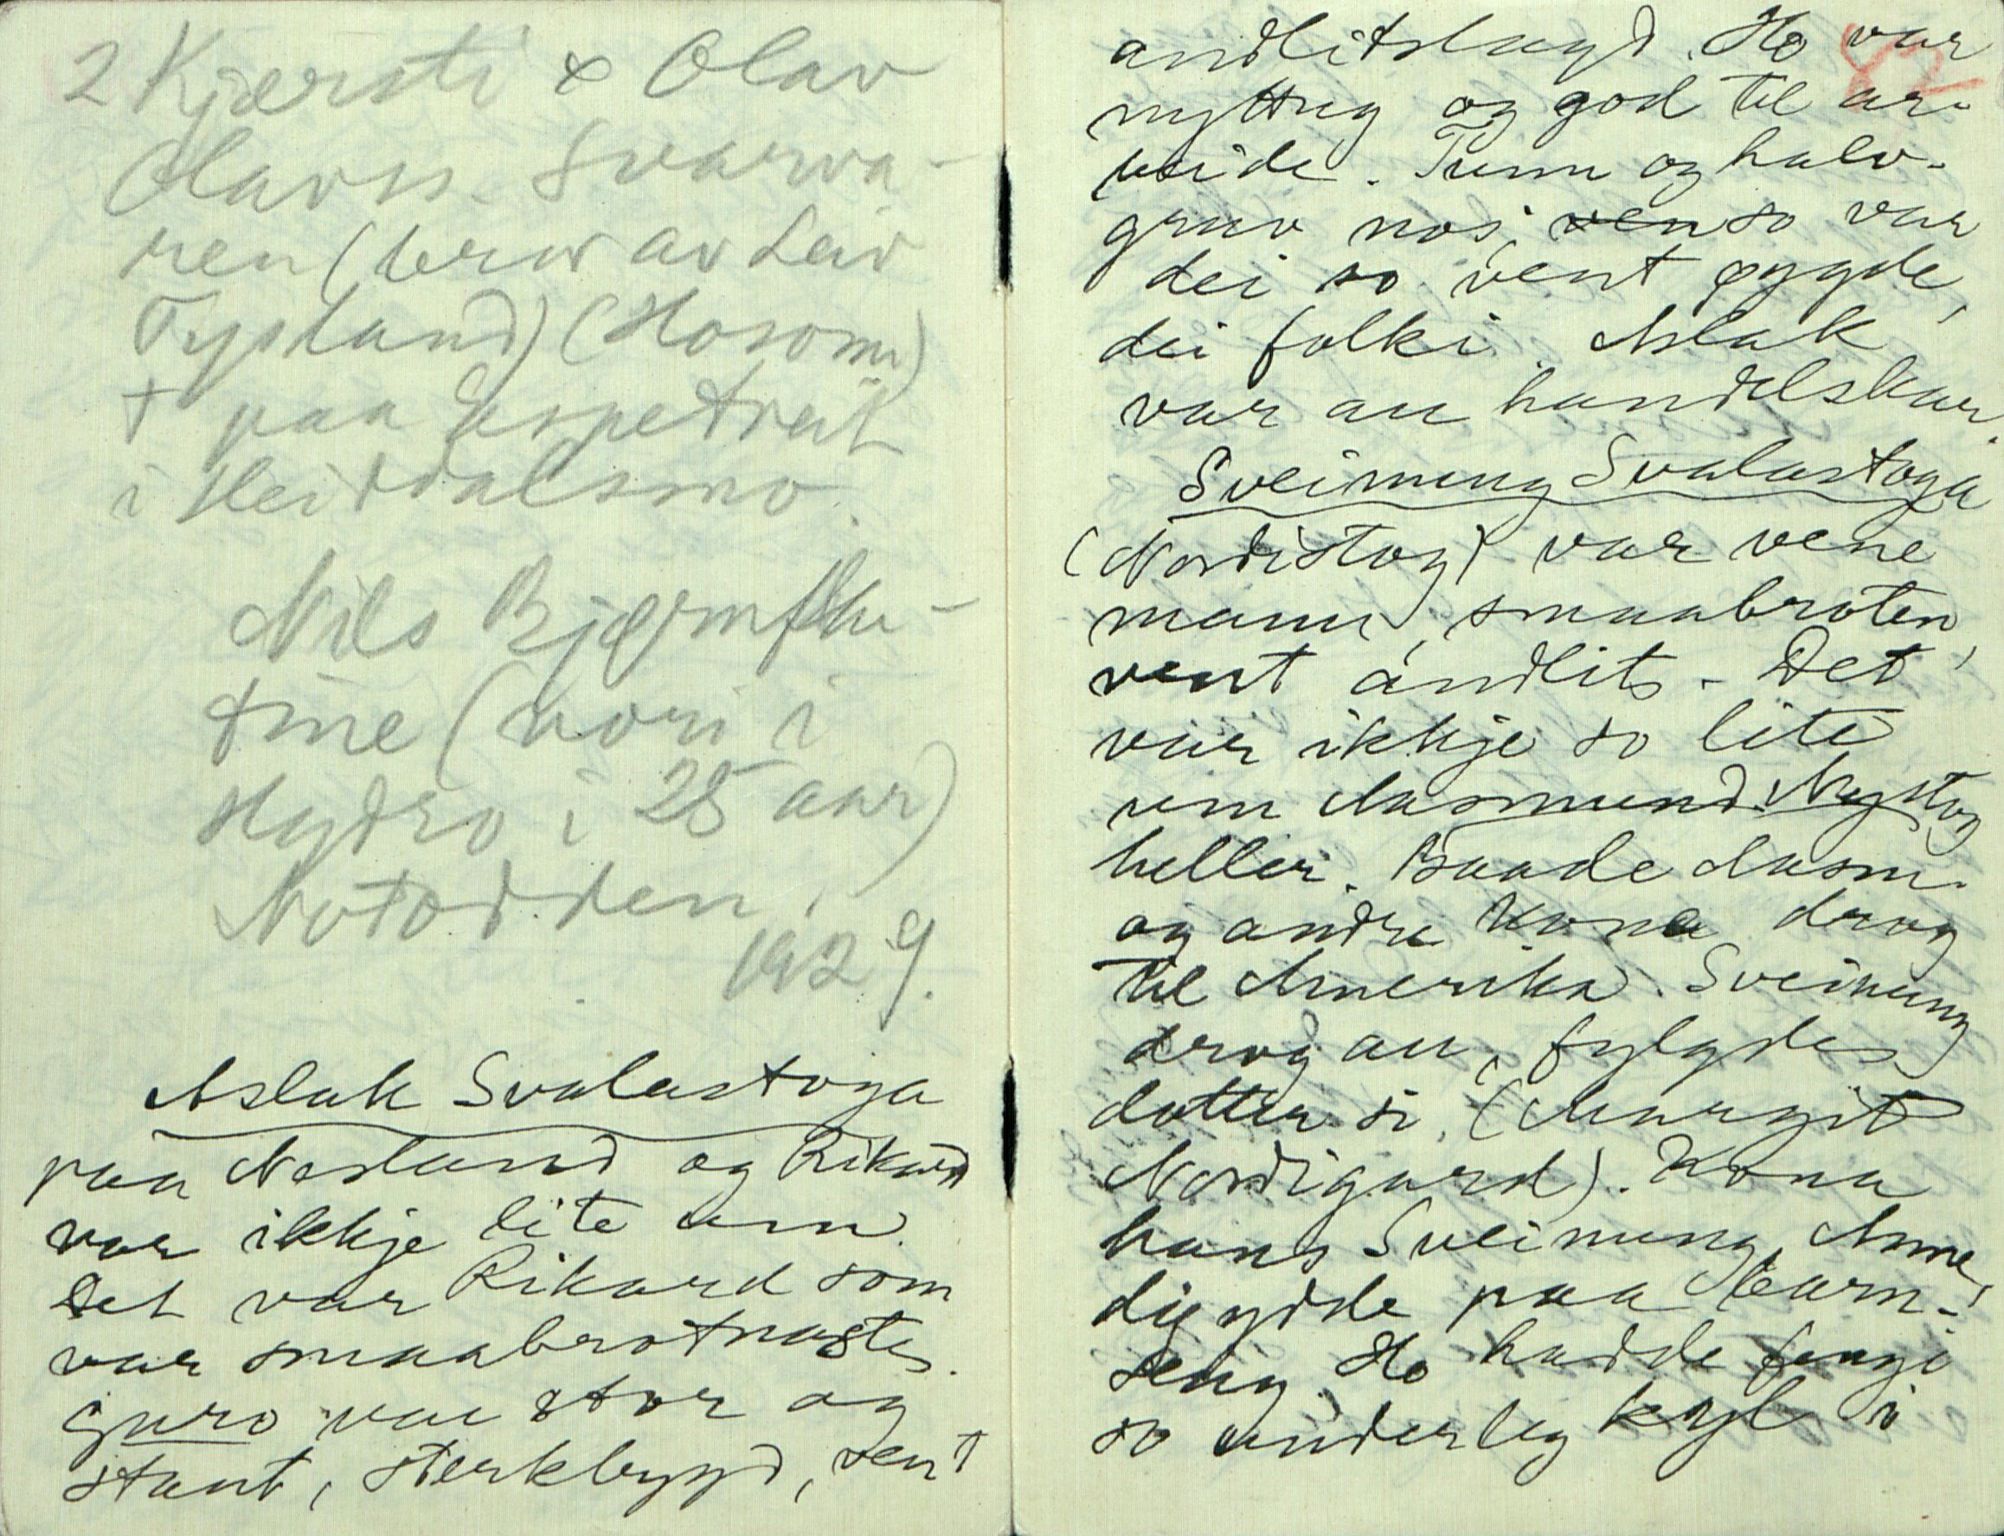 2 Kjærsti & Olav
Olavss. Svarva-
ren (bror av Leiv
Typeland) (Hosom)
+ paa Espetveit
i Heiddalsmo.
Nils Bjørnflu-
tine (vori i
Hydro i 25 aar)
Notodden,
1929.
Aslak Svalastoga
paa Nesland og Rikard
var ikkje lite um.
Det var Rikard som
var smaabrotnaste.
Guro var stor og
staut, sterkbygd, vent
andlitslagd. Ho var
nyttug og god til ar-
beide. Tunn og halv-
grav nos, ven so var
dei so vent bygde,
dei folki. Aslak
var au handelskar.
Sveinung Svalastoga
(Nordistog) var vene
mann, smaabroten,
vent andlits. Det
var ikkje so lite
um Aasmund Nystog
heller. Baade Aasm.
og andre kona drog
til Amerika. Sveinung
drog au, fylgdes
dotter si, (Margit
Nordigard). Kona
hans Sveinung, Anne,
døydde paa barn-
seng. Ho hadde fengi
so underleg kyl i